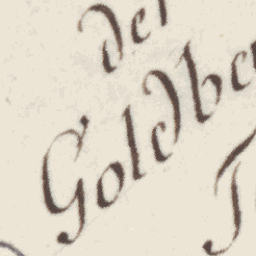 der
Goldbe